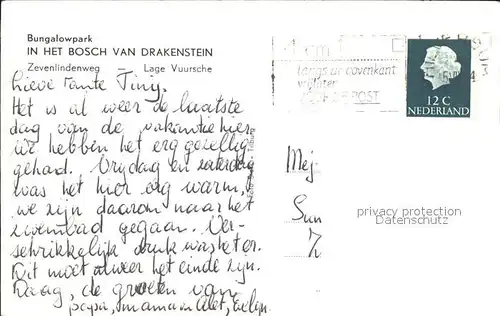 Bungalowpark
IN HET BOSCH VAN DRAKENSTEIN
Zevenlindenweg Lage Vuursche
Lieve Tante Tiny.
Het is al weer de laatste
dag van de vakantie hier,
we hebben het erg gezellig
gehad. Vrijdag en zaterdag
was het hier erg warm,
we zijn daarom naar het
zwembad gegaan. Ver-
schrikkelijk druk was het er.
Dit moet alweer het einde zijn.
Daag, de groeten van
papa, mama en Alet, Evelyn.
1 cm
langs de bovenkant
vrijlaten
POST
12 C
NEDERLAND
Mej
Sun
privacy protection
Datenschutz